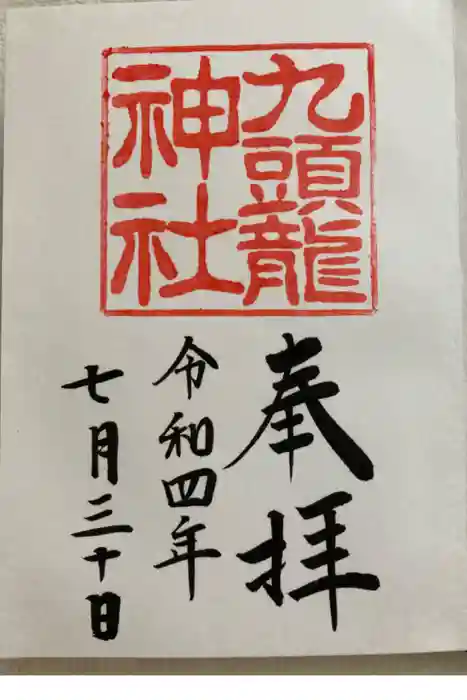 九頭龍
神社
奉拝
令和四年
七月三十日